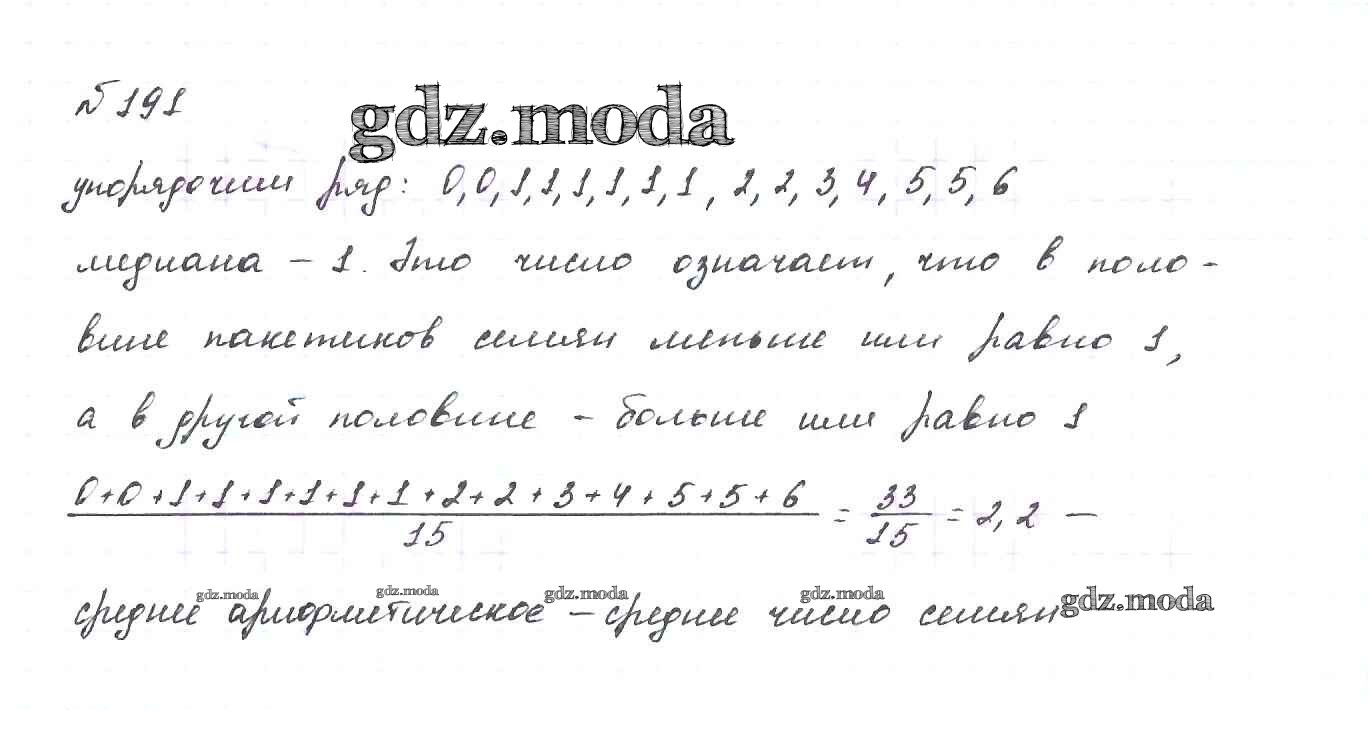 № 191
gdz.moda
упорядочим ряд: 0, 0, 1, 1, 1, 1, 1, 1, 2, 2, 3, 4, 5, 5, 6
медиана – 1. Это число означает, что в поло-
вине пакетиков семян меньше или равно 1,
а в другой половине – больше или равно 1
0+0+1+1+1+1+1+1+2+2+3+4+5+5+6/15 = 33/15 = 2,2 –
среднее арифметическое – среднее число семян
gdz.moda gdz.moda gdz.moda gdz.moda gdz.moda